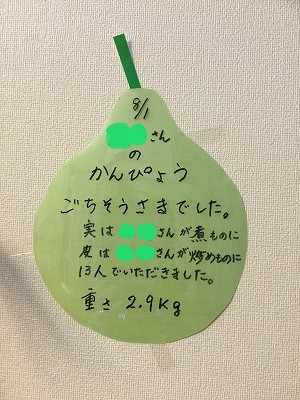 8/1
さん
の
かんぴょう
ごちそうさまでした。
実は さんが煮ものに
皮は さんが炒めものに
13人でいただきました。
重さ 2.9Kg